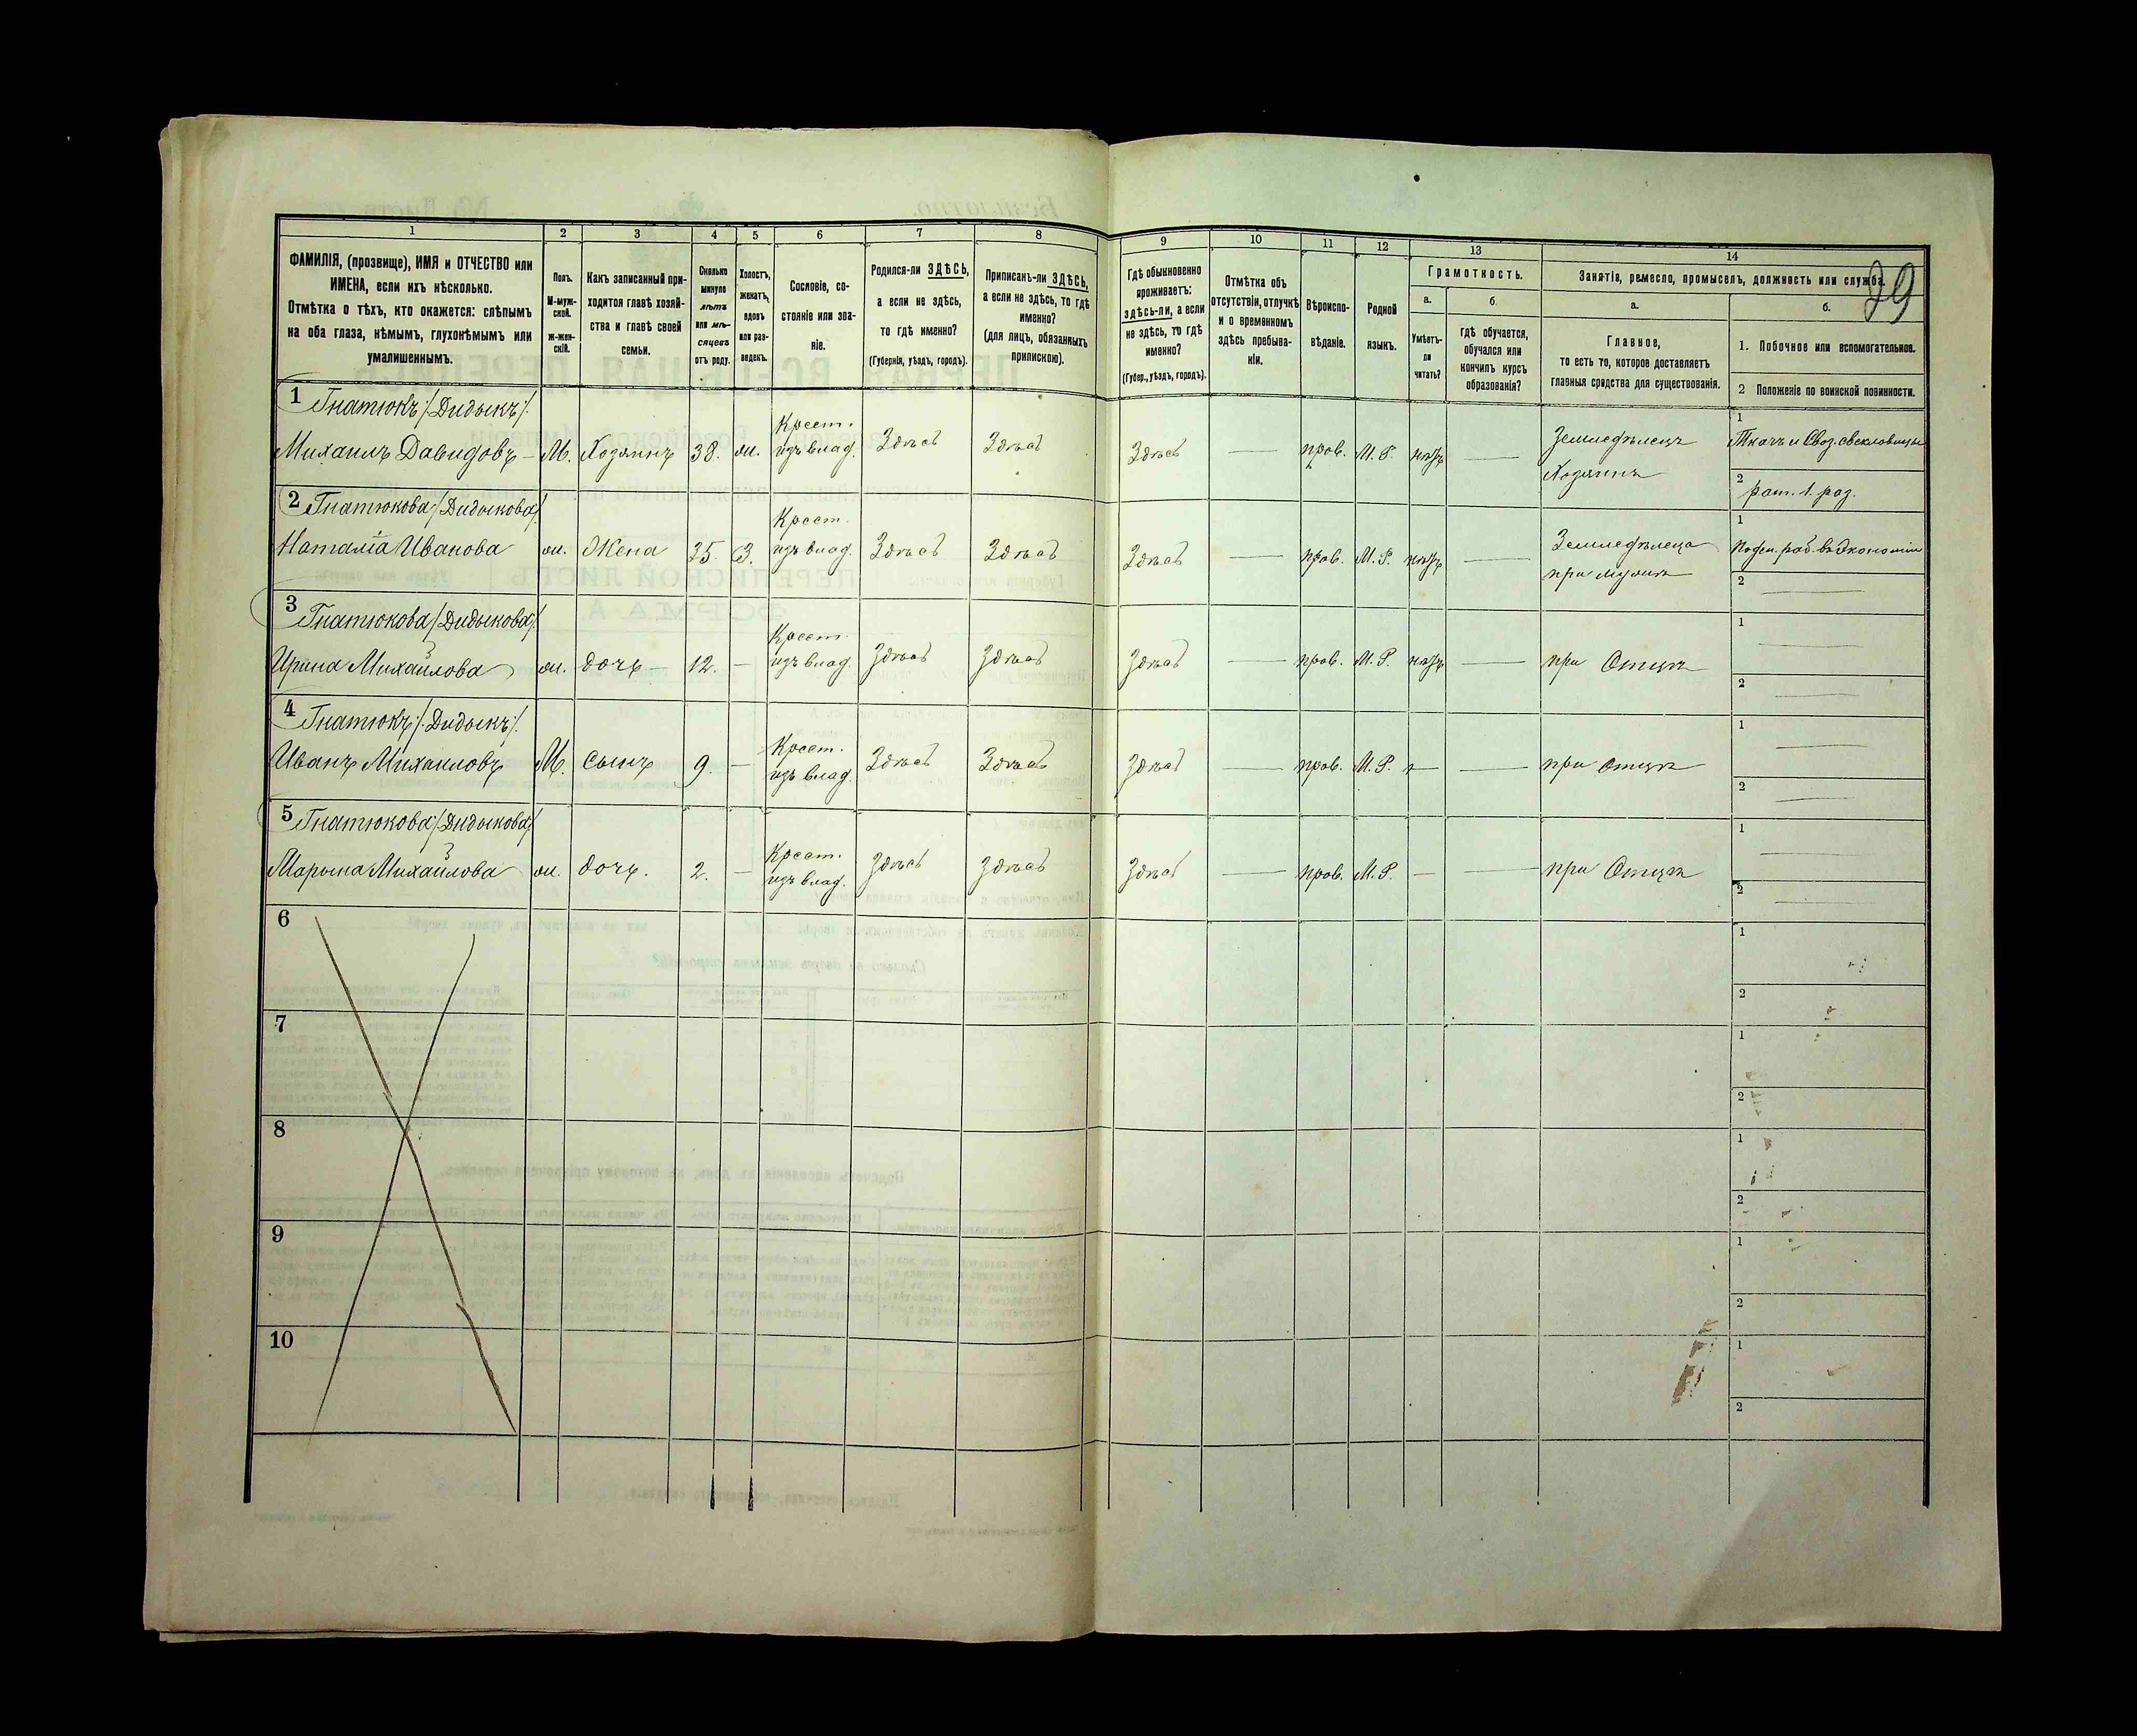 29
1 2 3 4 5 6 7 8 9 10 11 12 13 14
ФАМИЛІЯ, (прозвище), ИМЯ и ОТЧЕСТВО или
ИМЕНА, если ихъ нѣсколько.
Отмѣтка о тѣхъ, кто окажется: слѣпымъ
на оба глаза, нѣмымъ, глухонѣмымъ или
умалишеннымъ.
Полъ.
М-муж-
ской.
Ж-жен-
скій.
Какъ записанный при-
ходится главѣ хозяй-
ства и главѣ своей
семьи.
Сколько
минуло
лѣтъ
или мѣ-
сяцевъ
отъ роду.
Холостъ,
женатъ,
вдовъ
или раз-
веденъ.
Сословіе, со-
стояніе или зва-
ніе.
Родился-ли ЗДѢСЬ,
а если не здѣсь,
то гдѣ именно?
(Губернія, уѣздъ, городъ).
Приписанъ-ли ЗДѢСЬ,
а если не здѣсь, то гдѣ
именно?
(для лицъ, обязанныхъ
припискою).
Гдѣ обыкновенно
проживаетъ:
здѣсь-ли, а если
не здѣсь, то гдѣ
именно?
(Губер., уѣздъ, городъ).
Отмѣтка объ
отсутствіи, отлучкѣ
и о временномъ
здѣсь пребыва-
ніи.
Вѣроиспо-
вѣданіе.
Родной
языкъ.
Грамотность.
а.
Умѣетъ-
ли
читать?
б.
гдѣ обучается,
обучался или
кончилъ курсъ
образованія?
Занятія, ремесло, промыселъ, должность или служба.
а.
Главное,
то есть то, которое доставляетъ
главныя средства для существованія.
б.
1. Побочное или вспомогательное.
2 Положеніе по воинской повинности.
1 Гнатюкъ /Дидыкъ/.
Михаилъ Давидовъ – М. Хозяинъ 38. ж. Крест. изъ влад. Здѣсь Здѣсь Здѣсь — прав. М. Р. нѣтъ — Земледѣлецъ Хозяинъ
1 Ткачъ и Своз. свекловицы
2 рат. 1. раз.
2 Гнатюкова /Дидыкова/.
Наталія Иванова ж. Жена 35. З. Крест. изъ влад. Здѣсь Здѣсь Здѣсь — прав. М. Р. нѣтъ — Земледѣлеца при мужѣ
1 Поден. раб. въ Экономіи
2 —
3 Гнатюкова /Дидыкова/.
Ирина Михайлова ж. дочь – 12. – Крест. изъ влад. Здѣсь Здѣсь Здѣсь — прав. М. Р. нѣтъ — при Отцѣ
1 —
2 —
4 Гнатюкъ /Дидыкъ/.
Иванъ Михаиловъ М. Сынъ 9. – Крест. изъ влад. Здѣсь Здѣсь Здѣсь — прав. М. Р. — — при Отцѣ
1 —
2 —
5 Гнатюкова /Дидыкова/
Марына Михайлова ж. дочь. 2. – Крест. изъ влад. Здѣсь Здѣсь Здѣсь — прав. М. Р. – — при Отцѣ
1 —
2 —
6
1
2
7
1
2
8
1
2
9
1
2
10
1
2